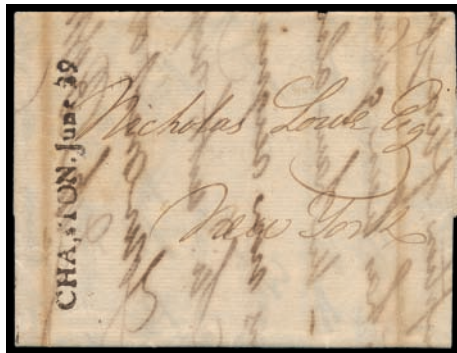 CHA,STON. June 29
Nicholas Lowe Esqr
New York